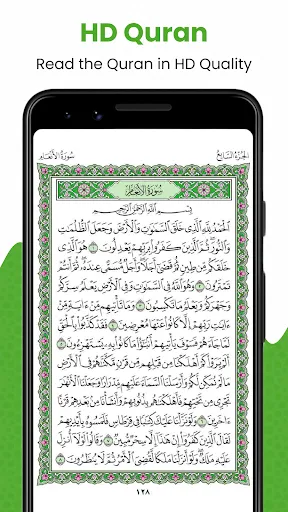 HD Quran
Read the Quran in HD Quality
الجزء السابع
سورة الأنعام
سورة الأنعام
بِسْمِ ٱللَّهِ ٱلرَّحْمَٰنِ ٱلرَّحِيمِ
ٱلْحَمْدُ لِلَّهِ ٱلَّذِى خَلَقَ ٱلسَّمَٰوَٰتِ وَٱلْأَرْضَ وَجَعَلَ ٱلظُّلُمَٰتِ
وَٱلنُّورَ ثُمَّ ٱلَّذِينَ كَفَرُوا۟ بِرَبِّهِمْ يَعْدِلُونَ ١ هُوَ ٱلَّذِى
خَلَقَكُم مِّن طِينٍ ثُمَّ قَضَىٰٓ أَجَلًا وَأَجَلٌ مُّسَمًّى عِندَهُۥ ثُمَّ أَنتُمْ
تَمْتَرُونَ ٢ وَهُوَ ٱللَّهُ فِى ٱلسَّمَٰوَٰتِ وَفِى ٱلْأَرْضِ يَعْلَمُ سِرَّكُمْ
وَجَهْرَكُمْ وَيَعْلَمُ مَا تَكْسِبُونَ ٣ وَمَا تَأْتِيهِم مِّنْ ءَايَةٍ مِّنْ
ءَايَٰتِ رَبِّهِمْ إِلَّا كَانُوا۟ عَنْهَا مُعْرِضِينَ ٤ فَقَدْ كَذَّبُوا۟ بِٱلْحَقِّ
لَمَّا جَآءَهُمْ فَسَوْفَ يَأْتِيهِمْ أَنۢبَٰٓؤُا۟ مَا كَانُوا۟ بِهِۦ يَسْتَهْزِءُونَ ٥
أَلَمْ يَرَوْا۟ كَمْ أَهْلَكْنَا مِن قَبْلِهِم مِّن قَرْنٍ مَّكَّنَّٰهُمْ فِى ٱلْأَرْضِ
مَا لَمْ نُمَكِّن لَّكُمْ وَأَرْسَلْنَا ٱلسَّمَآءَ عَلَيْهِم مِّدْرَارًا وَجَعَلْنَا ٱلْأَنْهَٰرَ
تَجْرِى مِن تَحْتِهِمْ فَأَهْلَكْنَٰهُم بِذُنُوبِهِمْ وَأَنشَأْنَا مِنۢ بَعْدِهِمْ قَرْنًا
ءَاخَرِينَ ٦ وَلَوْ نَزَّلْنَا عَلَيْكَ كِتَٰبًا فِى قِرْطَاسٍ فَلَمَسُوهُ بِأَيْدِيهِمْ
لَقَالَ ٱلَّذِينَ كَفَرُوٓا۟ إِنْ هَٰذَآ إِلَّا سِحْرٌ مُّبِينٌ ٧ وَقَالُوا۟ لَوْلَآ أُنزِلَ
عَلَيْهِ مَلَكٌ وَلَوْ أَنزَلْنَا مَلَكًا لَّقُضِىَ ٱلْأَمْرُ ثُمَّ لَا يُنظَرُونَ ٨
١٢٨